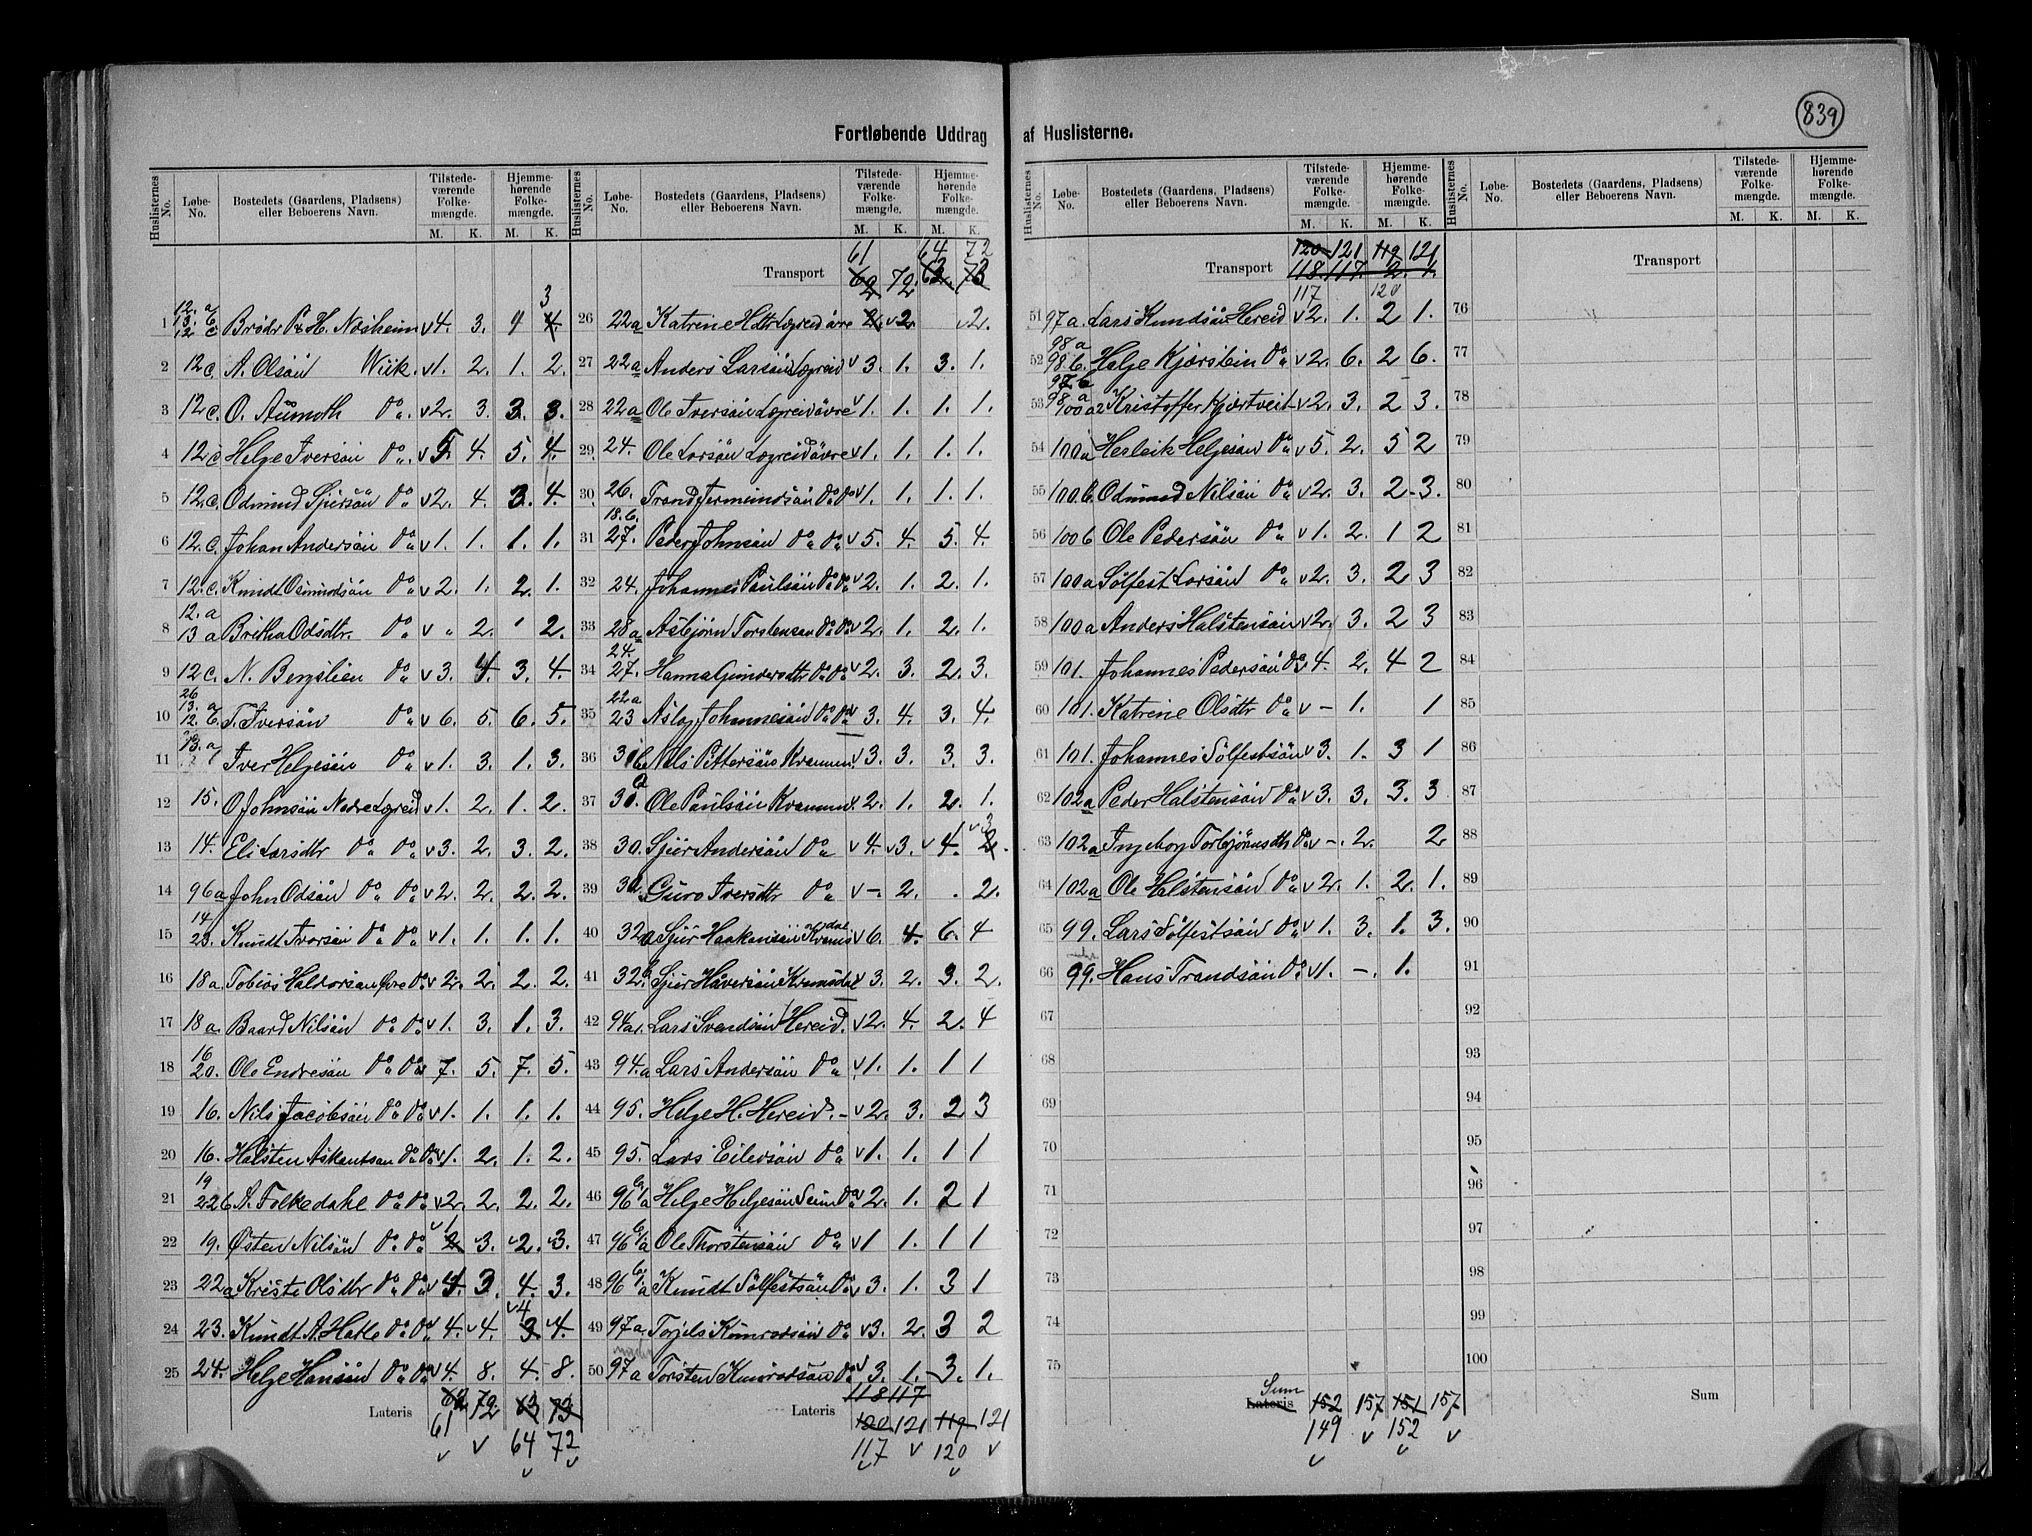 839
Fortløbende Uddrag af Huslisterne.
Huslisternes No. Løbe-No. Bostedets (Gaardens, Pladsens) eller Beboerens Navn. Tilstedeværende Folkemængde. Hjemmehørende Folkemængde.
M. K. M. K.
3
1 12 a 13 b 12 c Brødr P & H. Næsheim v4. 3. 4 4.
2 12c. A. Olsön Wiik. v1. 2. 1. 2.
3 12c. O. Aumoth do v2. 3. 3. 3.
4 12c Helge Iversön do v5. 4. 5. 4.
5 12.c. Odmund Sjursön do v2. 4. 3. 4.
6 12.c. Johan Andersön do v1. 1. 1. 1.
7 12.c. Knudt Osmundsön do v2. 1. 2. 1.
8 12.a 13 a Britha Odsdtr. do v " 2. ' 2.
9 12c. N. Bergslien do v3. 4. 3. 4.
10 26 13. a 12. b. T. Iversön do v6. 5. 6. 5.
11 13. a Iver Helgesön do v1. 3. 1. 3.
12 15. O Johnsön Nedre Lægreid v1. 2. 1. 2.
13 14. Eli Larsdtr do do v3. 2. 3. 2.
14 96a John Odsön do do v2. 2. 2. 2.
15 14 23. Knudt Iversön do do v1. 1. 1. 1.
16 18a. Tobias Haldorsön Øvre do v2. 2. 2. 2.
17 18a. Baard Nilsön do do v1. 3. 1. 3.
18 16 20. Ole Endresön do do v7. 5. 7. 5.
19 16. Nils Jacobsön do do v1. 1. 1. 1.
20 16. Halsten Askautsøn do do v1. 2. 1. 2.
21 19 22b A. Folkedahl do do v2. 2. 2. 2.
v1
22 19. Østen Nilsön do do 2 v3. v2. v3.
23 22a Kriste Olsdtr do do v4. 3. 4. 3.
v4
24 23. Knudt A. Hatle do do 4. v4. 3 v4.
25 24. Helge Hansön do do v4. 8. 4. 8.
Lateris 62 72 63 73
61 64 72
v v v v
61 64 72
Transport 62 72 63. 73
26 22a Katrine Hdtr Lægreid øvre 2. v2 v2.
27 22a Anders Larsön Lægreid v3. 1. 3. 1.
28 22a Ole Iversön Lægreid øvre v1. 1. 1. 1.
29 24. Ole Larsön Lægreid øvre v1. 1. 1. 1.
30 26. Trand do do v1. 1. 1. 1.
31 18.b. 27. Peder Johnsön do do v5. 4. 5. 4.
32 24. Johannes Paulsön do do v2. 1. 2. 1.
33 28a Asbjörn Torstensøn do do v2. 1. 2. 1.
34 24. 27. Hanna Gundersdtr do do v2. 3. 2. 3.
35 22a 23 Aslag Johannesön do do 3. 4. 3. 4.
36 31b Nils Pittersön Kvammen 3. 3. 3. 3.
37 30. Ole Paulsön Kvammen 2. 1. 2. 1.
v3
38 30. Sjur Andersön do v4. v3. v4. 2.
39 30. Guro Iversdtr do v-. 2. . 2.
40 32a Sjur Haakonsön Kvamsdal v6. 4. 6. 4
41 32b. Sjur Haversön Kvamsdal 3. 2. 3. 2.
42 94a. Lars Svendsön Hereid. v2. 4. 2. 4
43 94.a Lars Andersön do v1. 1. 1 1
44 95. Helge H. Hereid. - v2. 3. 2 3
45 95. Lars Eilevsön do v1. 1. 1 1
46 96 b/a Helge Helgesön Seim do v2. 1. 2 1
47 96 b/a Ole Thorstensön do v1 1. 1 1
48 96 b/a Knudt Sölfestsön do v3. 1. 3 1
49 97a. Torjels Konradsön do v3. 2. 3 2
50 97a Torsten do v3. 1. 3. 1.
Lateris 118 117
120 121 119 121
117 v 120 v
v v
120 121 119 121
Transport 118. 117. 2. 1.
117 120
51 97a. Lars Knudsön Hereid v2. 1. 2 1.
52 98a 98.b. Helge Kjærstein do v2. 6. 2 6.
53 97.b 98.a 100a2 Kristoffer Kjærtveit v2. 3. 2 3.
54 100a Herleik Helgesön do v5. 2. 5 2
55 100.b. Odmund Nilsön do v2. 3. 2. 3.
56 100b Ole Pedersön do v1. 2. 1 2
57 100a Sölfest Larsön do v2. 3. 2 3
58 100a Anders Halstensön v2. 3. 2 3
59 101. Johannes Pedersön do 4. 2. 4 2
60 101. Katrine Olsdtr do v - 1. 1
61 101. Johannes Sölfestsön v3. 1. 3 1
62 102a Peder Halstensön do v3. 3. 3. 3
63 102a Ingeborg Torbjörnsdtr do v -. 2. 2
64 102a Ole Halstensön do v2. 1. 2. 1.
65 99. Lars Sölfestsön do v1. 3. 1. 3.
66 99. Hans Trandsön do v1. -. 1.
67
68
69
70
71
72
73
74
75
Sum
Lateris 152 157 151 157
149 v 152 v
v v
Transport
76
77
78
79
80
81
82
83
84
85
86
87
88
89
90
91
92
93
94
95
96
97
98
99
100
Sum